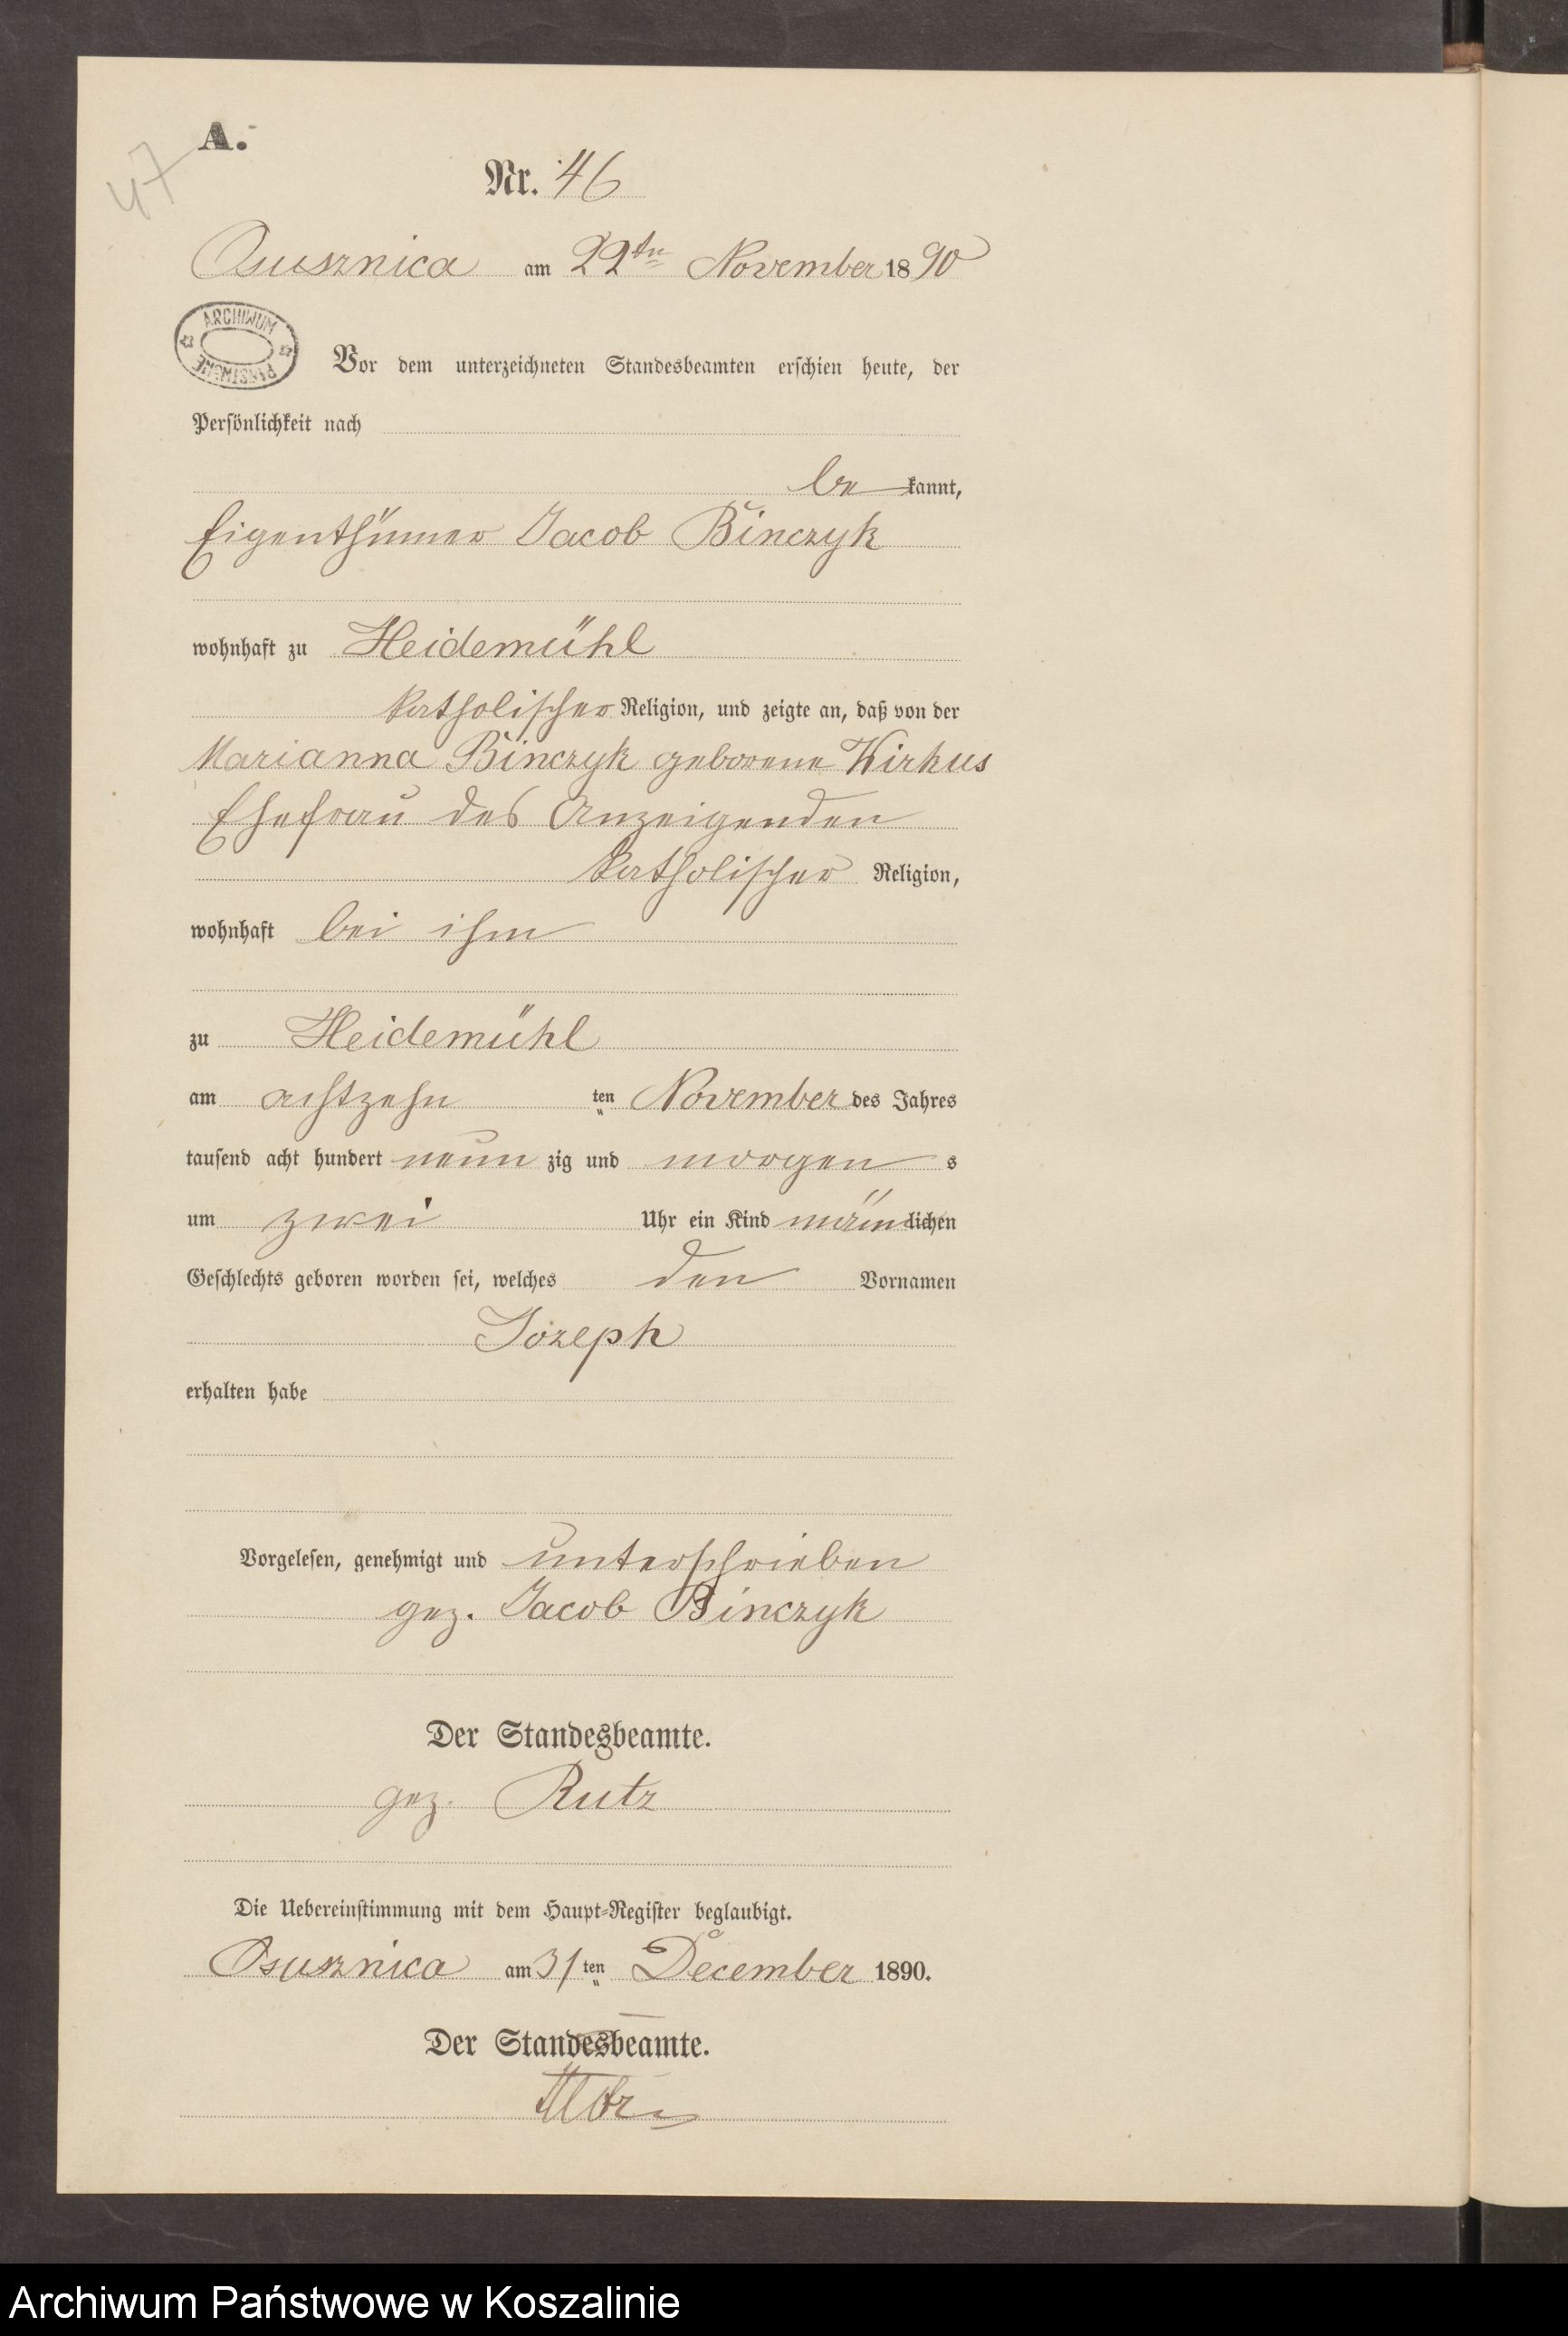 A.
47
Nr. 46
Osusznica am 22ten November 1890
ARCHIWUM PAŃSTWOWE
Vor dem unterzeichneten Standesbeamten erschien heute, der
Persönlichkeit nach
be kannt,
Eigenthümer Jacob Binczyk
wohnhaft zu Heidemühl
katholischer Religion, und zeigte an, daß von der
Marianna Binczyk geborene Wirkus
Ehefrau des Anzeigenden
katholischer Religion,
wohnhaft bei ihm
zu Heidemühl
am achtzehn ten November des Jahres
tausend acht hundert neun zig und morgen s
um zwei Uhr ein Kind männlichen
Geschlechts geboren worden sei, welches den Vornamen
Jozeph
erhalten habe
Vorgelesen, genehmigt und unterschrieben
gez. Jacob Binczyk
Der Standesbeamte.
gez. Rutz
Die Uebereinstimmung mit dem Haupt-Register beglaubigt.
Osusznica am 31 ten December 1890.
Der Standesbeamte.
Archiwum Państwowe w Koszalinie